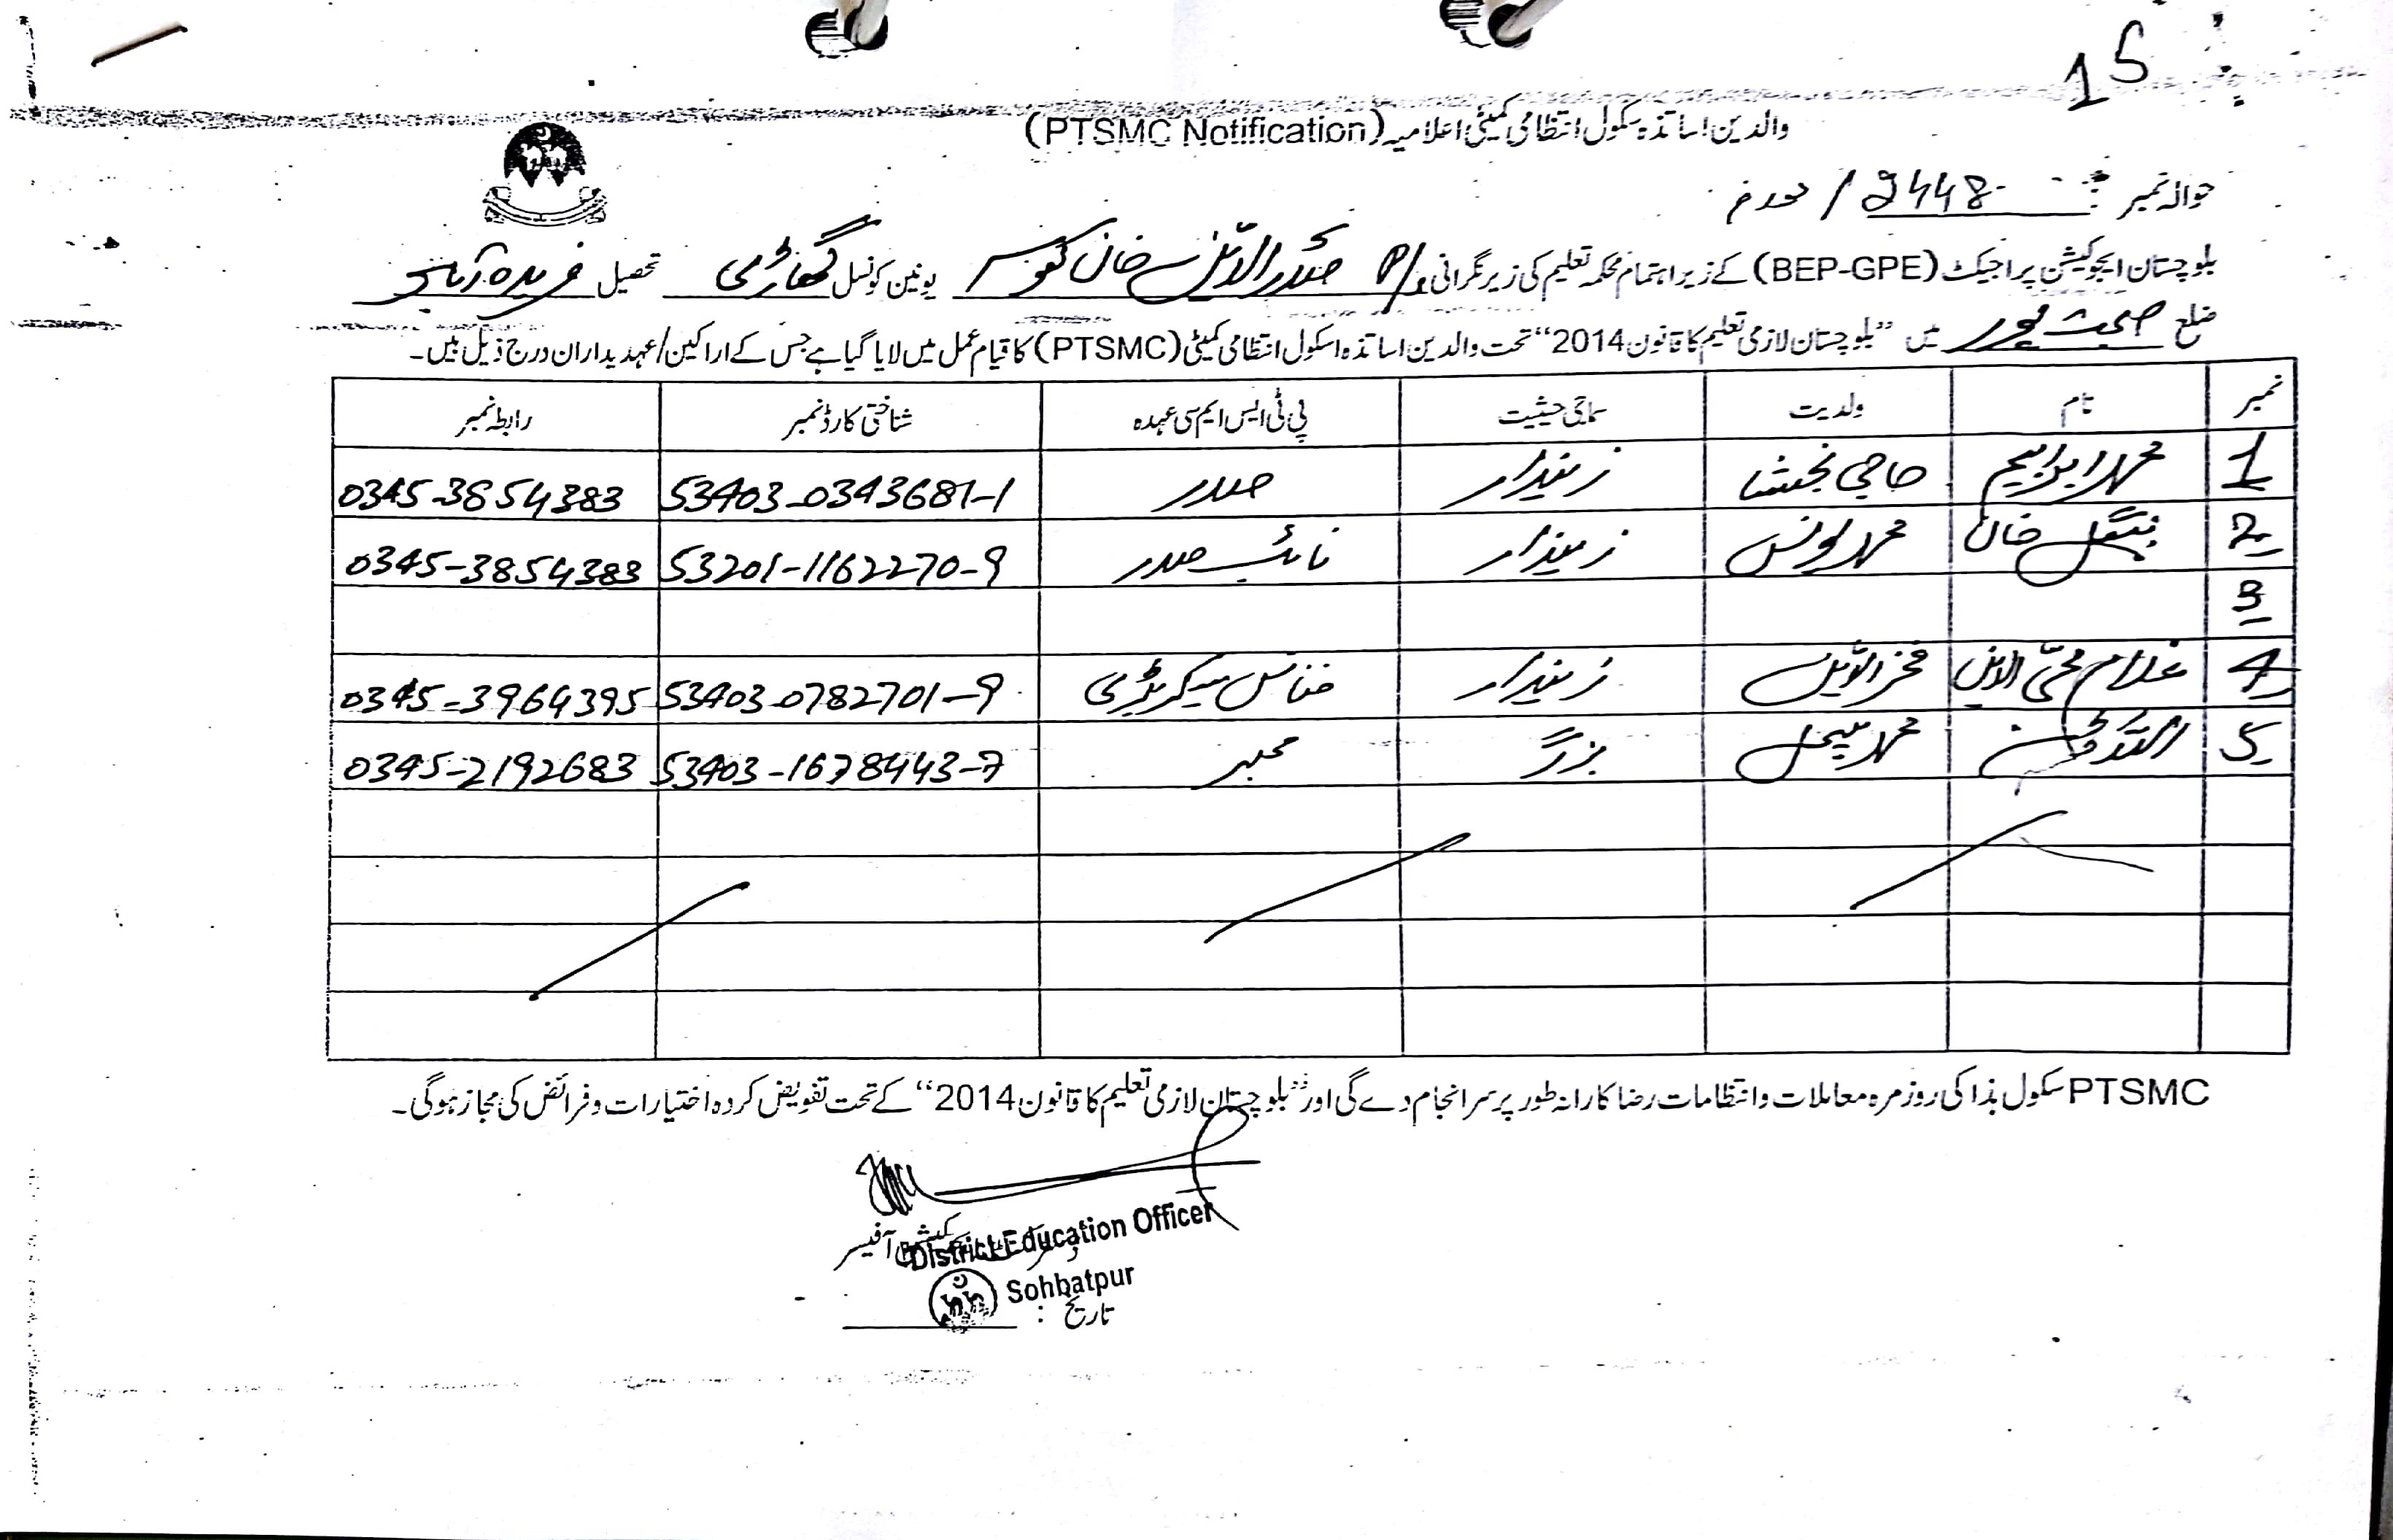 15
والدین اساتذہ سکول انتظامی کمیٹی اعلامیہ (PTSMC Notification)
حوالہ نمبر : 2448 /
بلوچستان ایجوکیشن پراجیکٹ (BEP-GPE) کے زیر اہتمام محکمہ تعلیم کی زیر نگرانی صدرالدین خان کھوسہ یونین کونسل تحصیل فریدآباد
ضلع صحبت پور میں ”بلوچستان لازمی تعلیم کا قانون 2014“ تحت والدین اساتذہ اسکول انتظامی کمیٹی (PTSMC) کا قیام عمل میں لایا گیا ہے جس کے اراکین/عہدیداران درج ذیل ہیں۔
نمبر نام ولدیت سماجی حیثیت پی ٹی ایس ایم سی عہدہ شناختی کارڈ نمبر رابطہ نمبر
1 محمد ابراہیم حاجی بخشا زمیندار صدر 53403-0343681-1 0345-3854383
2 خان محمد یونس زمیندار نائب صدر 53201-1162270-9 0345-3854383
3
4 غلام محی الدین فخرالدین زمیندار فنانس سیکریٹری 53403-0782701-9 0345-3964395
5 محمد بزرگ ممبر 53403-1678443-7 0345-2192683
PTSMC سکول ہذا کی روزمرہ معاملات و انتظامات رضاکارانہ طور پر سرانجام دے گی اور ”بلوچستان لازمی تعلیم کا قانون 2014“ کے تحت تفویض کردہ اختیارات و فرائض کی مجاز ہوگی۔
آفیسر
District Education Officer
Sohbatpur
تاریخ :